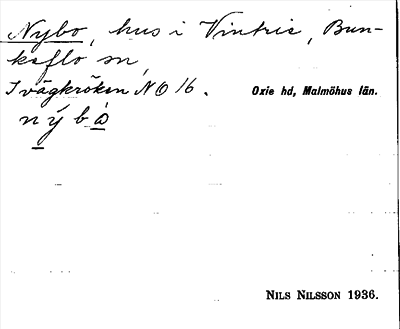 Nybo, hus i Vintrie, Bun-
keflo sn,
I vägkröken NO 16.
Oxie hd, Malmöhus län.
n ý b ò
NILS NILSSON 1936.